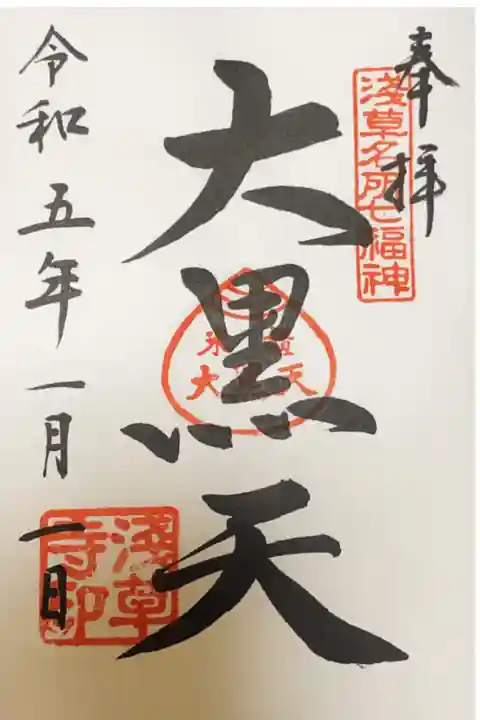 奉拝
浅草名所七福神
大黒天
大 天
令和五年一月一日
浅草寺印